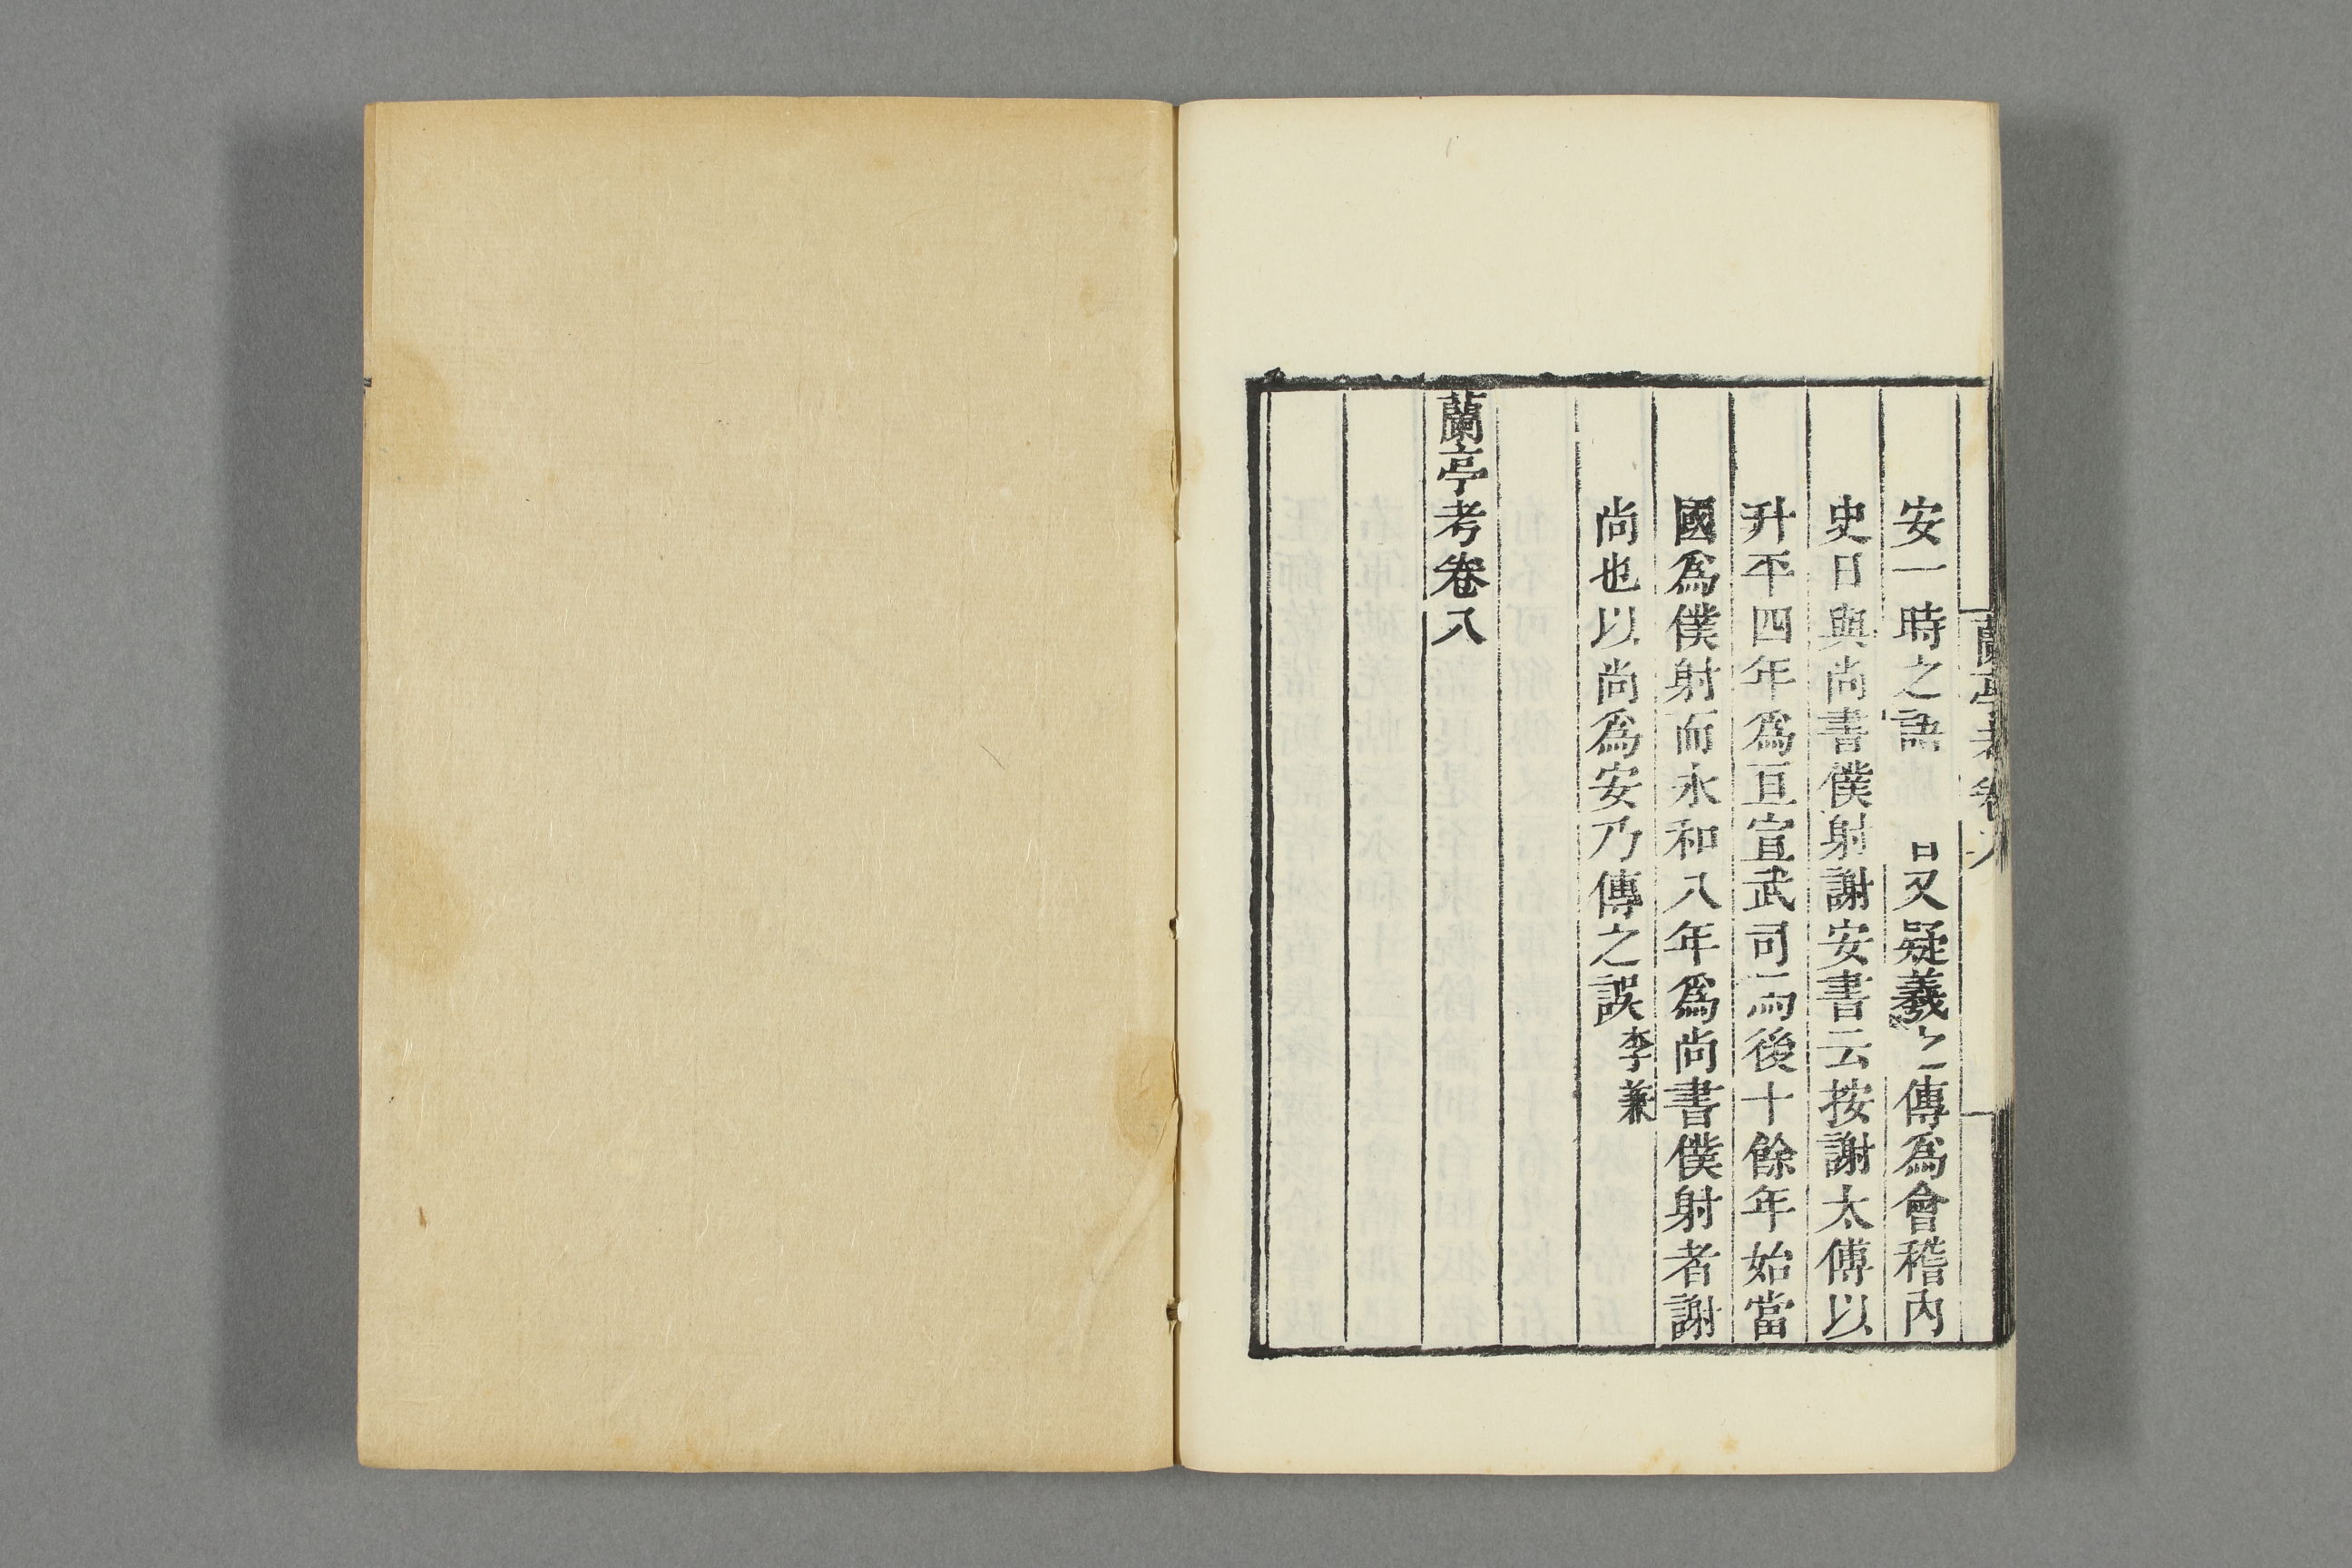 蘭亭考卷八
安一時之語 日又疑羲之傳爲會稽內
史日與尚書僕射謝安書云按謝太傅以
升平四年爲亘宣武司馬後十餘年始當
國爲僕射而永和八年爲尚書僕射者謝
尚也以尚爲安乃傳之誤李兼
蘭亭考卷八